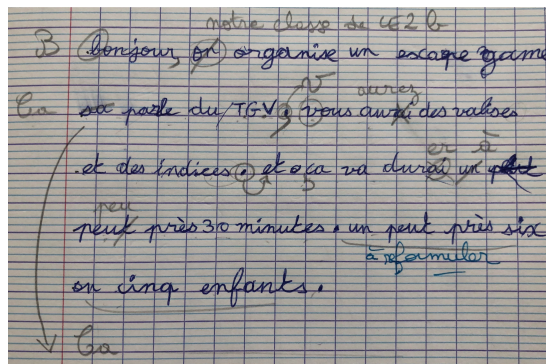 notre classe de CE2 b
B bonjour, on organise un escape game
Ca sa parle du TGV. vous aurai des valises
V aurez
et des indices. et ça va durai un peut
er à
peu
peut près 30 minutes. un peut près six
à reformuler
on cinq enfants.
Ca